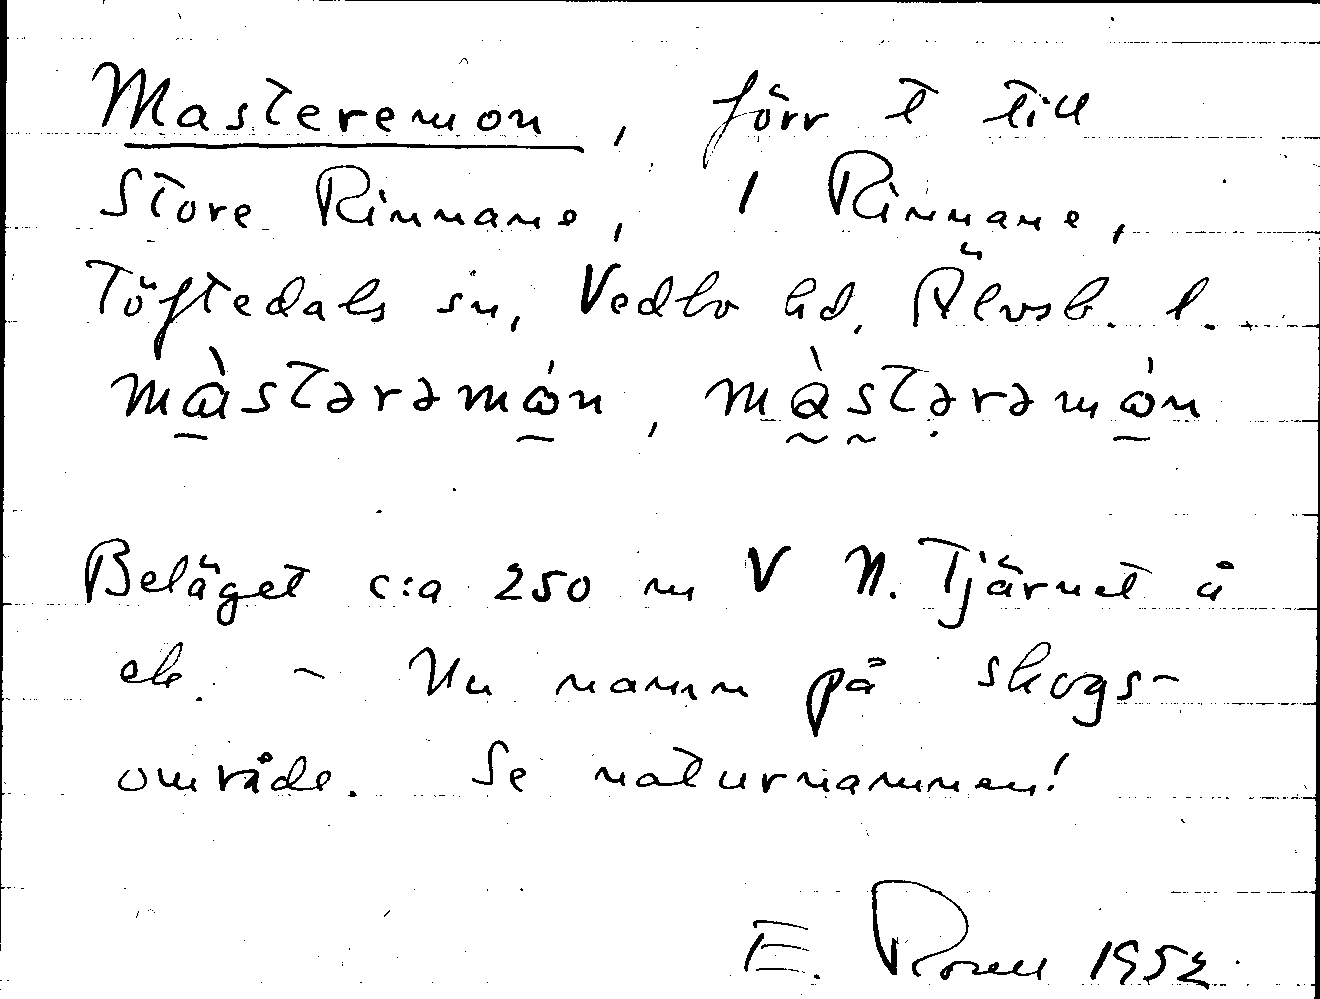 Masteremon, förr t till
Store Rinnane, 1 Rinnane,
Töftedals sn, Vedbo hd, Älvsb. l.
màstərəmón, màstərəmón
Beläget c:a 250 m V N. Tjärnet å
ek. - Nu namn på skogs-
område. Se naturnamnen!
E. Rosell 1952.